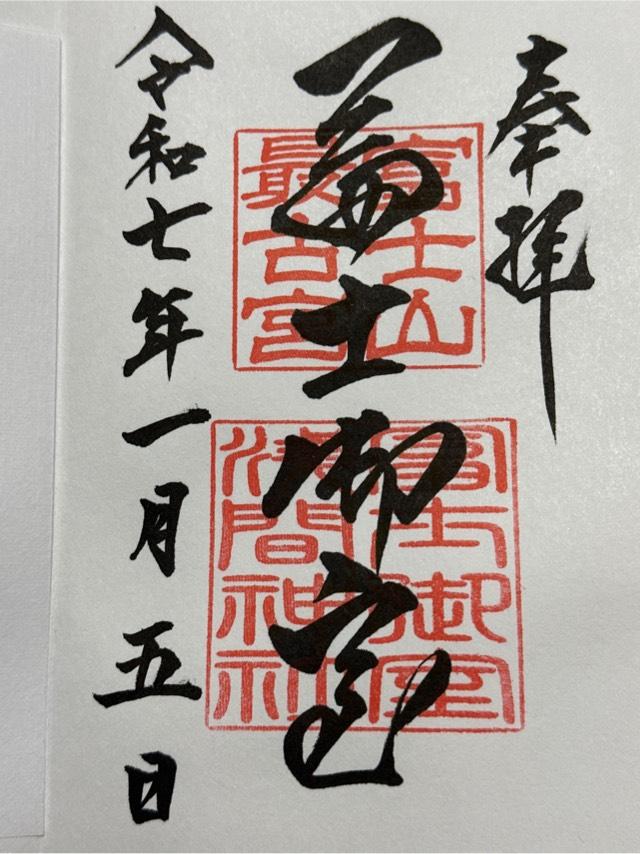 奉拝
冨士御室
令和七年一月五日
富士山
最古宮
冨士御室
浅間神社